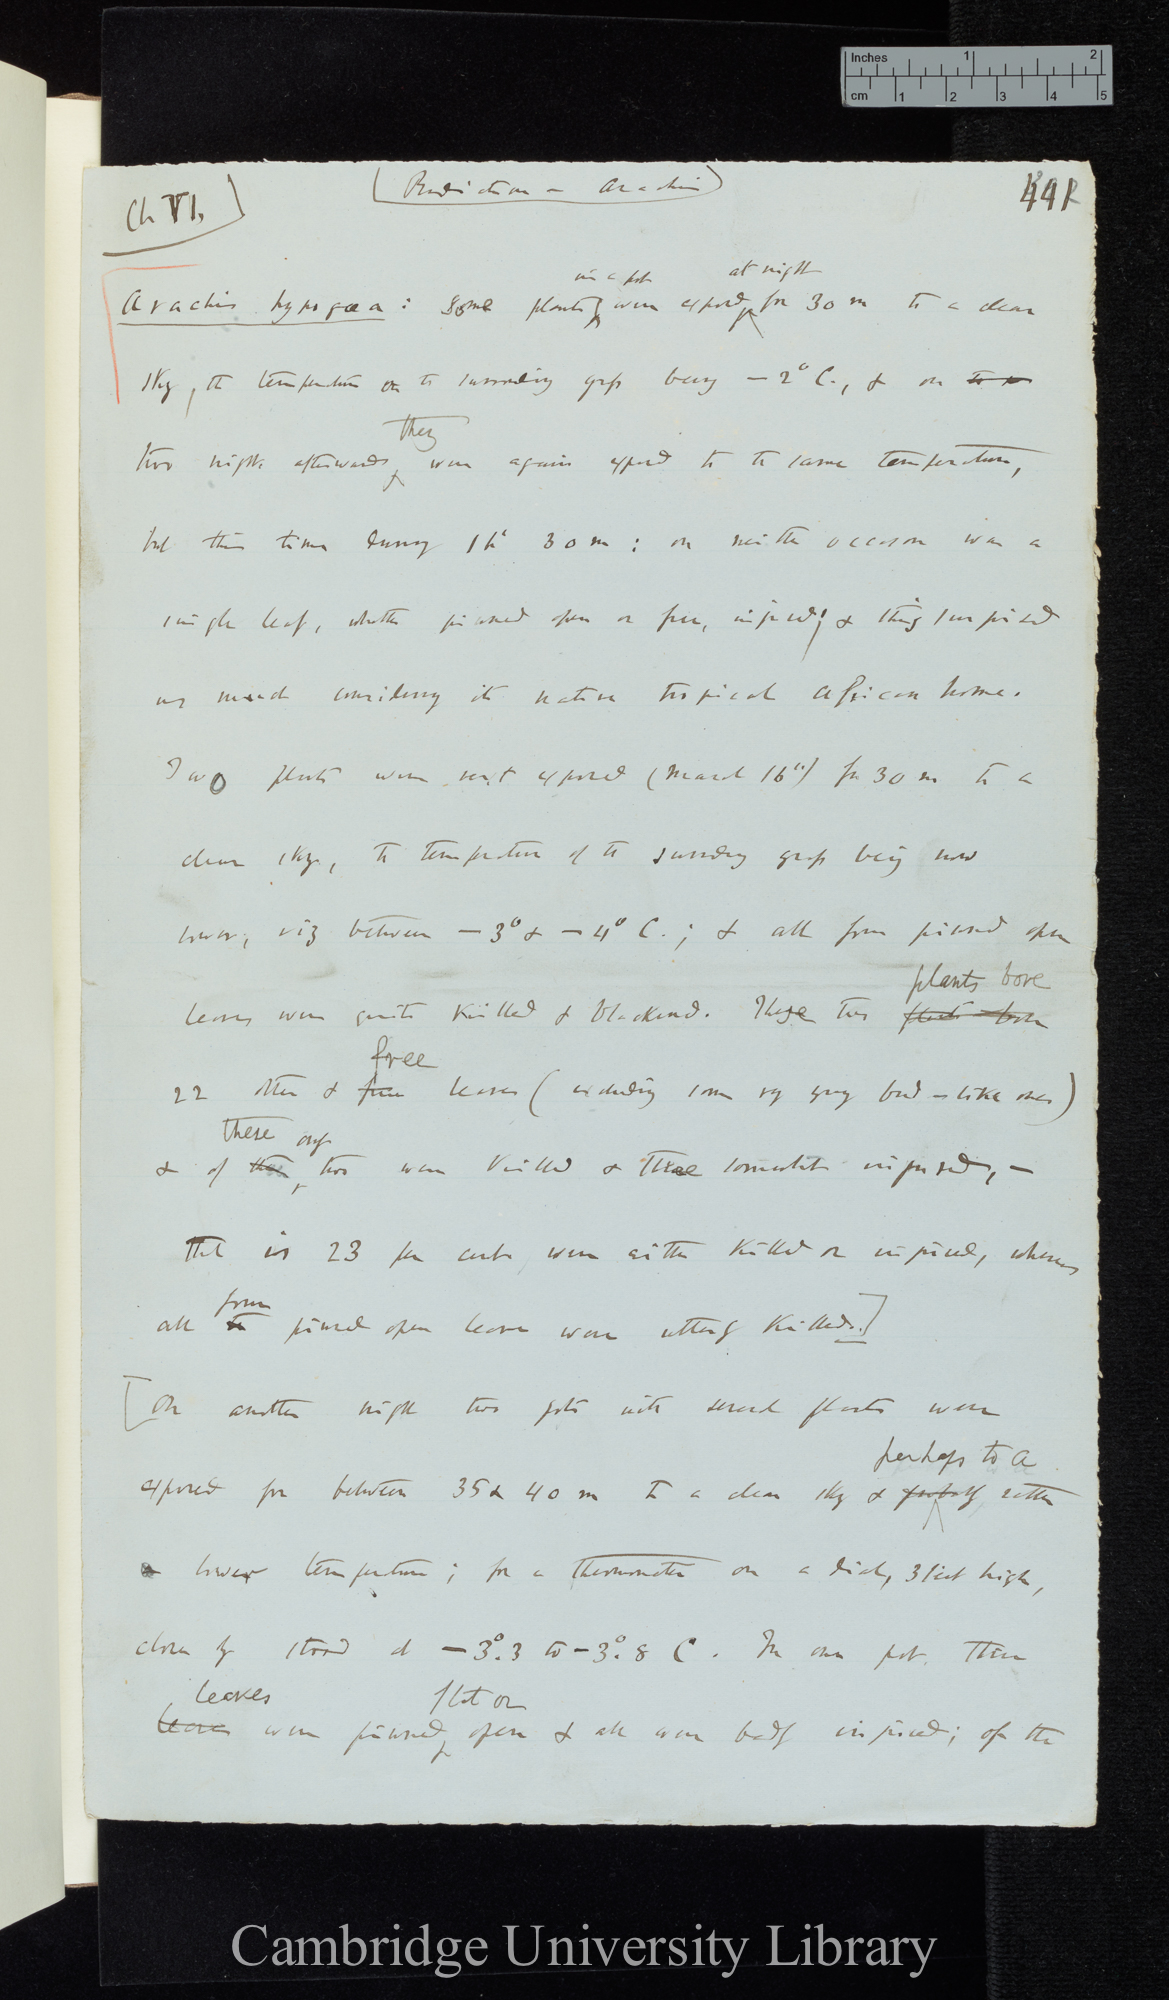 Inches 1 2
cm 1 2 3 4 5
(Radiation — Arachis)
Ch VI.
441
in a pot at night
Arachis hypogæa: Some plants were exposed for 30 m to a clear
sky, the temperature on the surrounding grass being — 2° C., & on
they
two nights afterwards were again exposed to the same temperature,
but this time during 1h 30 m: on neither occasion was a
single leaf, whether pinned open or free, injured; & this surprised
us much considering its native tropical African home.
Two plants were next exposed (March 16th) for 30 m to a
clear sky, the temperature of the surrounding grass being now
lower, viz between — 3° & — 4° C.; & all four pinned open
plants bore
leaves were quite killed & blackened. These two plants bore
free
22 other & free leaves (excluding some very young bud-like ones)
these only
& of these, two were killed & three somewhat injured, —
that is 23 per cent were either killed or injured, whereas
four
all the pinned open leaves were utterly killed.]
[On another night two pots with several plants were
perhaps to a
exposed for between 35 & 40 m to a clear sky & probably rather
a lower temperature; for a thermometer on a dial, 3 feet high,
close by stood at — 3°.3 to — 3°.8 C. In one pot three
leaves flat or
leaves were pinned open & all were badly injured; of the
Cambridge University Library